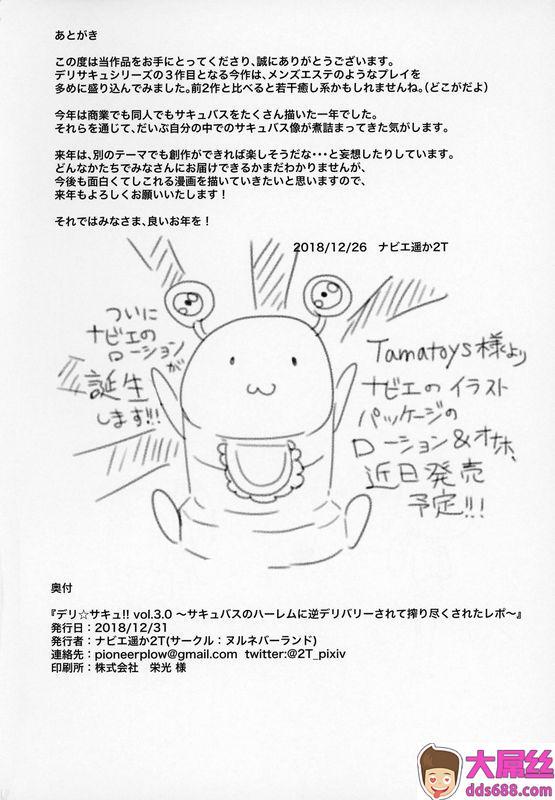 あとがき
この度は当作品をお手にとってくださり、誠にありがとうございます。
デリサキュシリーズの3作目となる今作は、メンズエステのようなプレイを
多めに盛り込んでみました。前2作と比べると若干癒し系かもしれませんね。(どこがだよ)
今年は商業でも同人でもサキュバスをたくさん描いた一年でした。
それらを通じて、だいぶ自分の中でのサキュバス像が煮詰まってきた気がします。
来年は、別のテーマでも創作ができれば楽しそうだな・・・と妄想したりしています。
どんなかたちでみなさんにお届けできるかまだわかりませんが、
今後も面白くてしこれる漫画を描いていきたいと思いますので、
来年もよろしくお願いいたします！
それではみなさま、良いお年を！
2018/12/26 ナビエ遥か2T
ついに
ナビエの
ローションが
誕生
します!!!
Tamatoys様より
ナビエのイラスト
パッケージの
ローション&オナホ、
近日発売
予定!!!
奥付
『デリ☆サキュ!! vol.3.0 ～サキュバスのハーレムに逆デリバリーされて搾り尽くされたレポ～』
発行日：2018/12/31
発行者：ナビエ遥か2T(サークル：ヌルネバーランド)
連絡先：pioneerplow@gmail.com twitter:@2T_pixiv
印刷所：株式会社 栄光 様
大屌丝
dds688.com